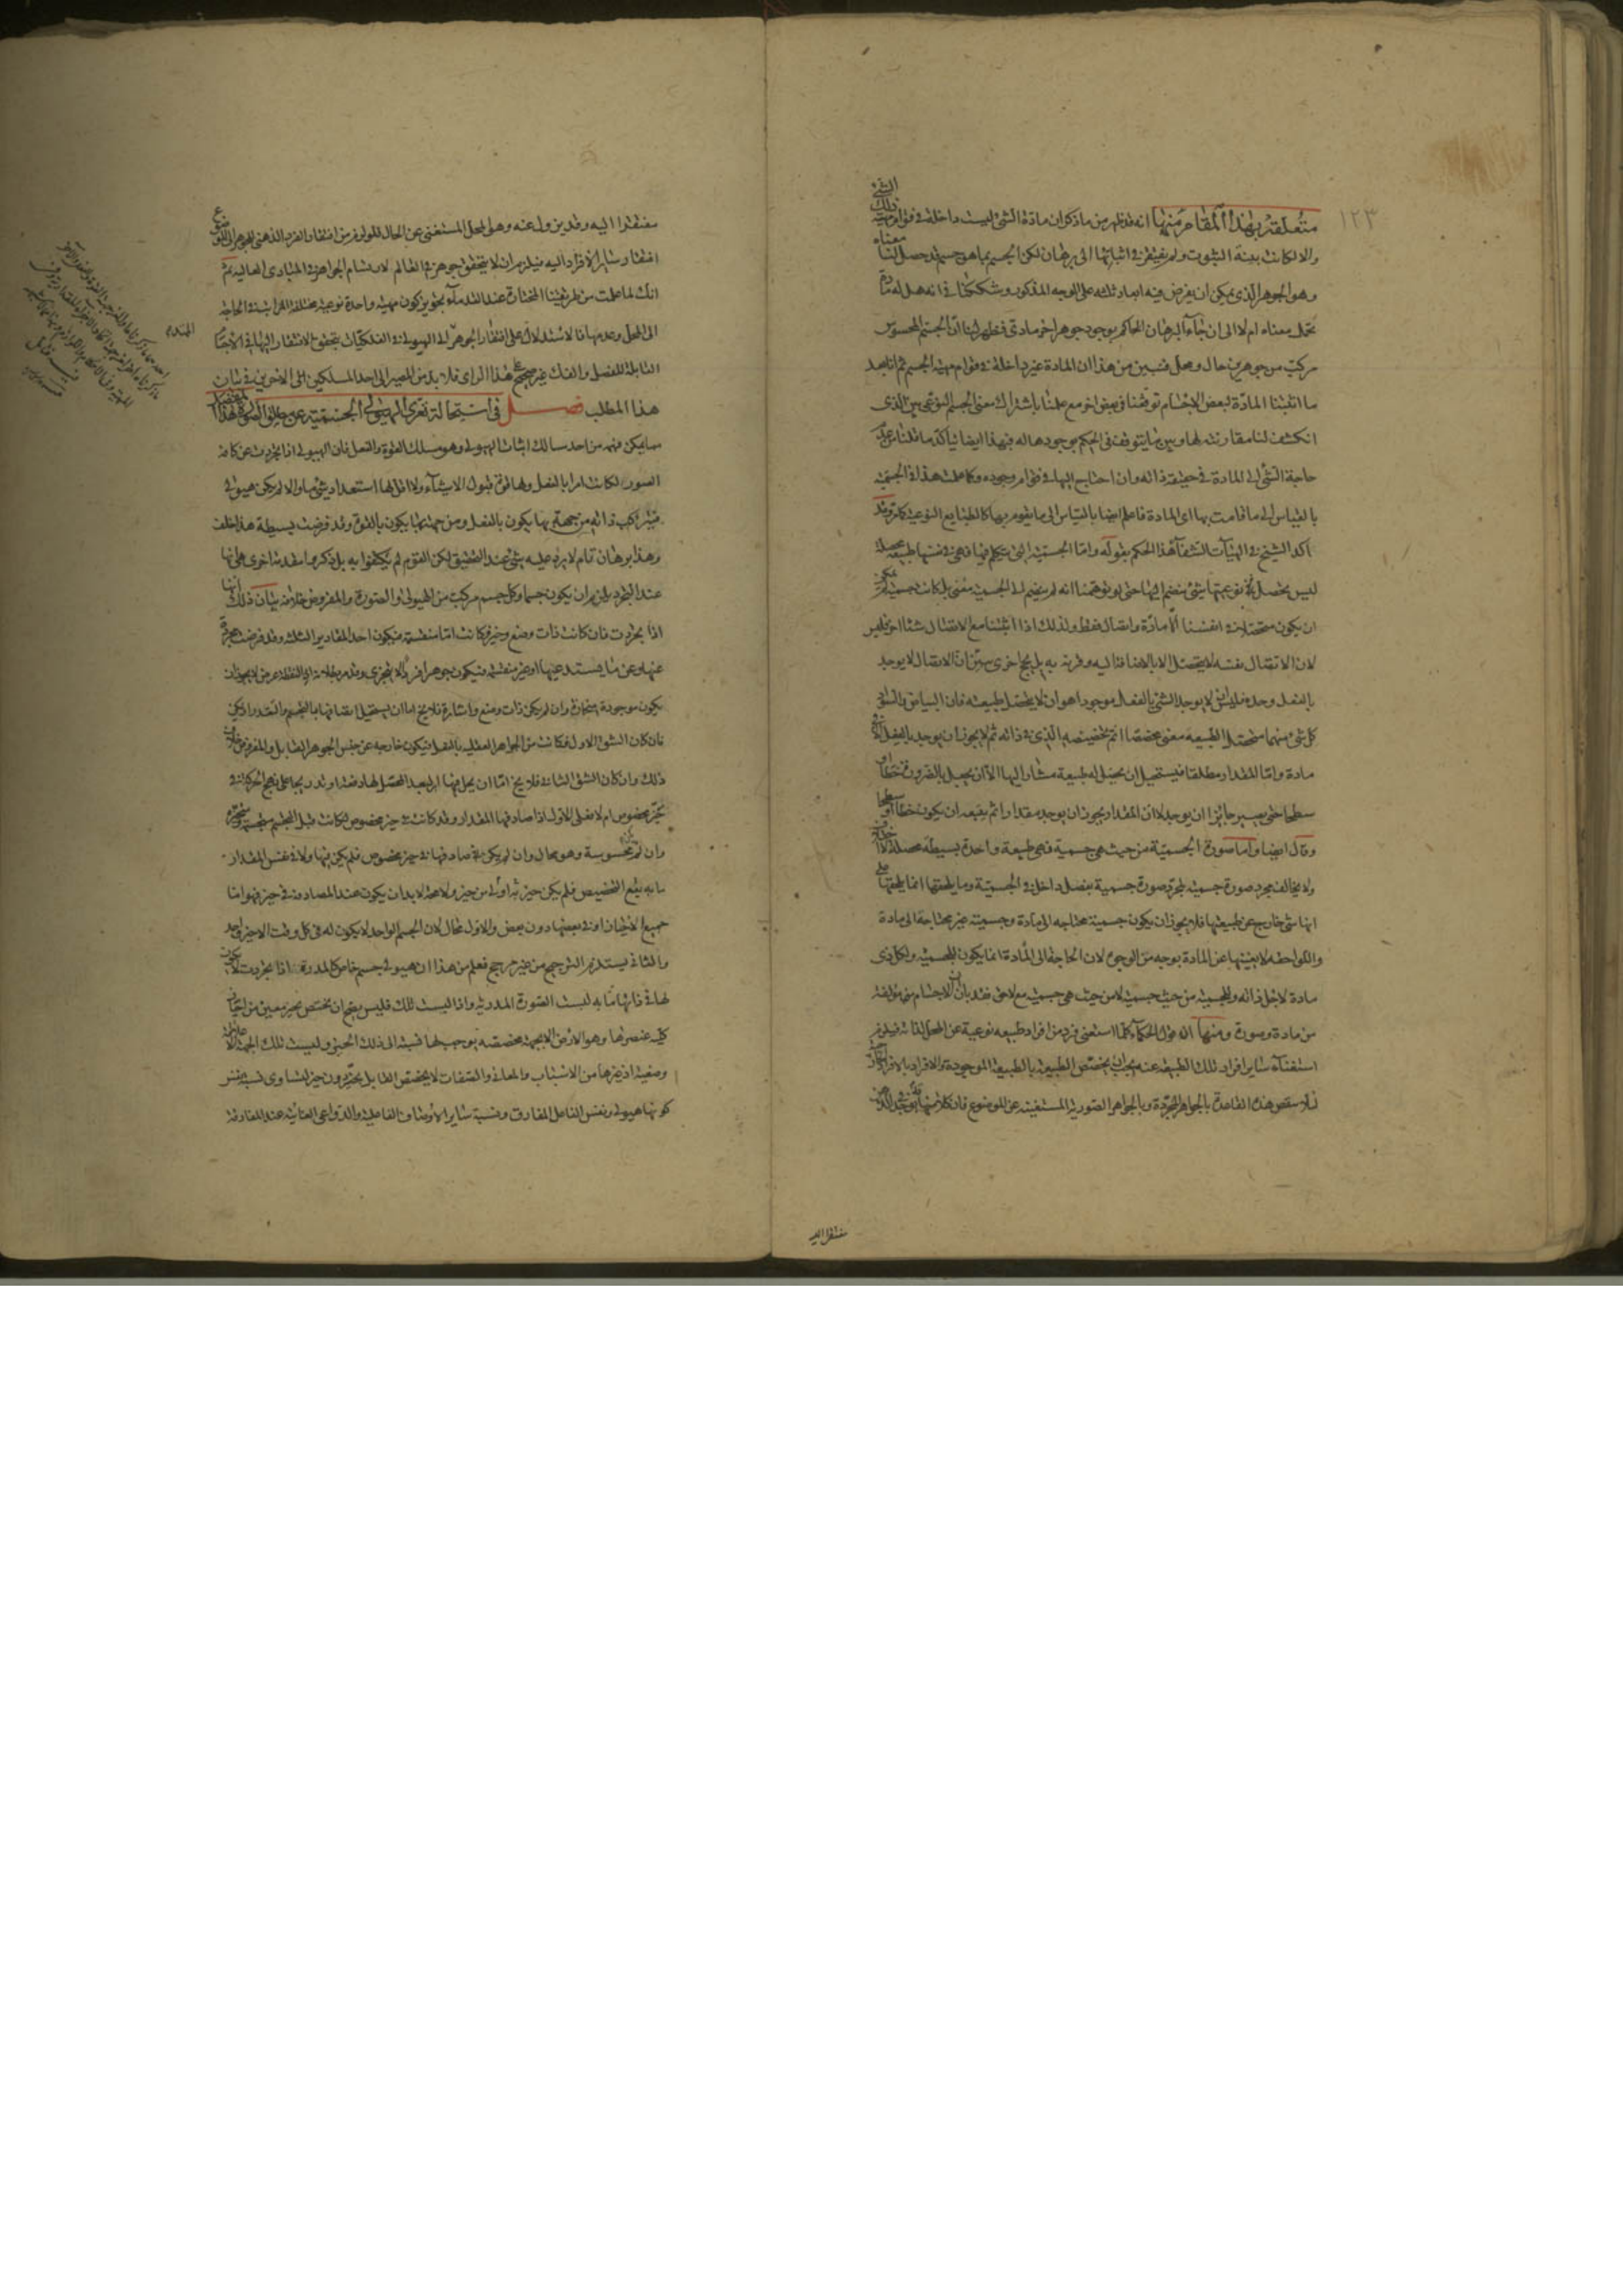 ١٢٣
متعلقة بهذا المقام منها انه قد ظهر من ما ذكر ان مادة الشئ ليست داخلة في قوام مهية ذلك الشئ
والا لكانت بينة الثبوت ولم يفتقر في اثباتها الى برهان لكن الجسم بما هو جسم قد حصل لنا معناه
وهو الجوهر الذي يمكن ان يفرض فيه ابعاد ثلثة على الوجه المذكور وشككنا في انه هل له مادة
تحمل معناه ام لا الى ان جاء البرهان الحاكم بوجود جوهر اخر مادي فظهر لنا ان الجسم المحسوس
مركب من جوهرين حال ومحل فتبين من هذا ان المادة غير داخلة في قوام مهية الجسم ثم انا بعد
ما اثبتنا المادة لبعض الاجسام توقفنا في بعض اخر مع علمنا باشتراك معنى الجسم النوعي بين الذي
انكشف لنا مقارنته لها وبين ما يتوقف في الحكم بوجودها له فبهذا ايضا يتأكد ما قلنا من عدم
حاجة الشئ الى المادة في حقيقة ذاته وان احتاج اليها في قوام وجوده وكما علمت هذا في الجسمية
بالقياس الى ما قامت بها اى المادة فاعلم ايضا بالقياس الى ما يقوم بها كالطبايع النوعية كلا وقد
اكد الشيخ في الهيات الشفاء هذا الحكم بقوله واما الجسمية التي نتكلم فيها فهي في نفسها طبيعة محصلة
ليس تحصل نوعيتها بشئ ينضم اليها حتى لو توهمنا انه لم ينضم الى الجسمية معنى بل كانت جسمية لم يمكن
ان يكون متحصلا في انفسنا الا مادة واتصال فقط ولذلك اذا اثبتنا مع الاتصال شيئا اخر فليس
لان الاتصال نفسه لا يتحصل الا بالاضافة اليه وقرنه به بل بحجج اخرى تبين ان الاتصال لا يوجد
بالفعل وحده فليس ان لا يوجد الشئ بالفعل موجودا هو ان لا يتحصل طبيعته فان البياض والسواد
كل شئ منهما متحصل الطبيعة معنى مخصصا اتم تخصيصه الذي في ذاته ثم لا يجوز ان يوجد بالفعل الا في
مادة واما المقدار مطلقا فيستحيل ان يحصل له طبيعة مشار اليها الا ان يجعل بالضرورة خطا او
سطحا حتى يصير جائزا ان يوجد لا ان المقدار يجوز ان يوجد مقدارا ثم يتبعه ان يكون خطا او سطحا
وقال ايضا واما صورة الجسمية من حيث هي جسمية فهي طبيعة واحدة بسيطة محصلة لا اختلاف فيها
ولا يخالف مجرد صورة جسمية لمجرد صورة جسمية بفصل داخل في الجسمية وما يلحقها انما يلحقها على
انها شئ خارج عن طبيعتها فلا يجوز ان يكون جسمية محتاجة الى مادة وجسمية غير محتاجة الى مادة
واللواحق لا يغنيها عن المادة بوجه من الوجوه لان الحاجة الى المادة انما يكون للجسمية ولكل ذى
مادة لاجل ذاته وللجسمية من حيث جسمية لا من حيث هي جسمية مع لاحق فقد بان ان الاجسام مؤلفة
من مادة وصورة ومنها ان قول الحكماء كلما استغنى فرد من افراد طبيعة نوعية عن المحل لذاته فيلزم
استغناء ساير افراد تلك الطبيعة عنه يجب ان يخصص الطبيعة بالطبيعة الموجودة والافراد بالافراد الخارجية
لئلا ينتقض هذه القاعدة بالجواهر المجردة وبالجواهر الصورية المستغنية عن الموضوع فان كلا منها
مفتقرا اليه
مفتقرا اليه وقد يزول عنه وهو المحل المستغنى عن الحال للزوم من افتقار الفرد الذهني للجوهر الى الموضوع
افتقار ساير الافراد اليه فيلزم ان لا يتحقق جوهر في العالم لارتسام الجواهر في المبادى العالية ثم
انك لما علمت من طريقتنا المختارة عند القدماء تجويز كون مهية واحدة نوعية مختلفة المراتب في الحاجة
الى المحل وعدمها فالاستدلال على افتقار الجوهر الى الهيولى في الفلكيات بتحقق الافتقار اليها في الاجسام
القابلة للفصل والفك غير صحيح على هذا الراى فلا بد من المصير الى احد المسلكين الاخرين في بيان
هذا المطلب فصل في استحالة تعرى الهيولى الجسمية عن مطلق الصورة لعلك بهذا
مما يمكن فهمه من احد مسالك اثبات الهيولى وهو مسلك القوة والفعل فان الهيولى اذا تجردت عن كافة
الصور لكانت امرا بالفعل ولها قوة قبول الاشياء ولا اقل لها استعداد شئ ما والا لم يكن هيولى
فيتركب ذاته من جهة بها يكون بالفعل ومن جهة بها يكون بالقوة وقد فرضت بسيطة هذا خلف
وهذا برهان تام لا يرد عليه شئ عند التحقيق لكن القوم لم يكتفوا به بل ذكروا مقدمة اخرى هي انها
عند التجرد يلزم ان يكون جسما وكل جسم مركب من الهيولى والصورة والمفروض خلافه بيان ذلك انها
اذا تجردت فان كانت ذات وضع وحيز فكانت اما منقسمة فيكون احد المقادير الثلثة وقد فرضت مجردة
عنها وعن ما يستدعيها او غير منقسمة فيكون جوهرا فردا لا يتجزى وقد مر بطلانه او النقطة عرض لا يجوز ان
يكون موجودة منحازة وان لم يكن ذات وضع واشارة فلا يخ اما ان يستحيل اتصافها بالتجسم والتقدر او يمكن
فان كان الشق الاول فكانت من الجواهر العقلية بالفعل فيكون خارجة عن جنس الجوهر القابل والمفروض خلاف
ذلك وان كان الشق الثاني فلا يخ اما ان يحل فيها البعد المحصل لها دفعة او تدريجا على نهج الحركة في
تحيز مخصوص ام لا فعلى الاول اذا صادفها المقدار وقد كانت في حيز مخصوص لكانت قبل التجسم متجسمة متحيزة
وان لم تكن محسوسة وهو محال وان لم يكن صادفها في حيز مخصوص فلم يكن فيها ولا في نفس المقدار
ما به يقع التخصيص فلم يكن حيز به اولى من حيز ولا محة لا بد ان يكون عند المصادفة في حيز فهو اما
جميع الاحياز او في بعضها دون بعض والاول محال لان الجسم الواحد لا يكون له في كل وقت الا حيز واحد
والثاني يستلزم الترجيح من غير مرجح فعلم من هذا ان هيولى جسم خاص كالمدرة اذا تجردت لا يكون
لها في ذاتها ما به لبست الصورة المدرية واذا لبست تلك فليس يصح ان يختص بحيز معين من احياز
كلية عنصرها وهو الارض الا بجهة مخصصة يوجب لها نسبة الى ذلك الحيز وليست تلك الجهة الا
وضعية اذ غيرها من الاسباب والمعاني والصفات لا يخصص القابل بحيز دون حيز لتساوى نسبة نفس
كونها هيولى ونفس الفاعل المفارق ونسبة ساير الاوصاف الفاعلية والدواعى الغائية عند المفارقة